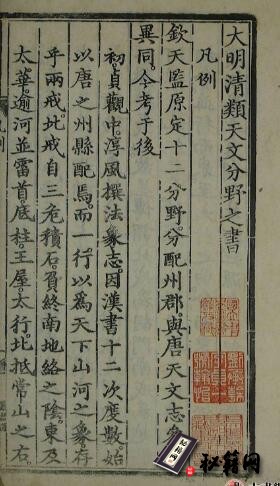 大明清類天文分野之書
凡例
欽天監原定十二分野分配州郡與唐天文志
異同今考于後
初貞觀中淳風撰法象志因漢書十二次度數始
以唐之州縣配焉而一行以為天下山河之象存
乎兩戒北戒自三危積石負終南地絡之陰東及
太華逾河並雷首底柱王屋太行北抵常山之右
秘籍网